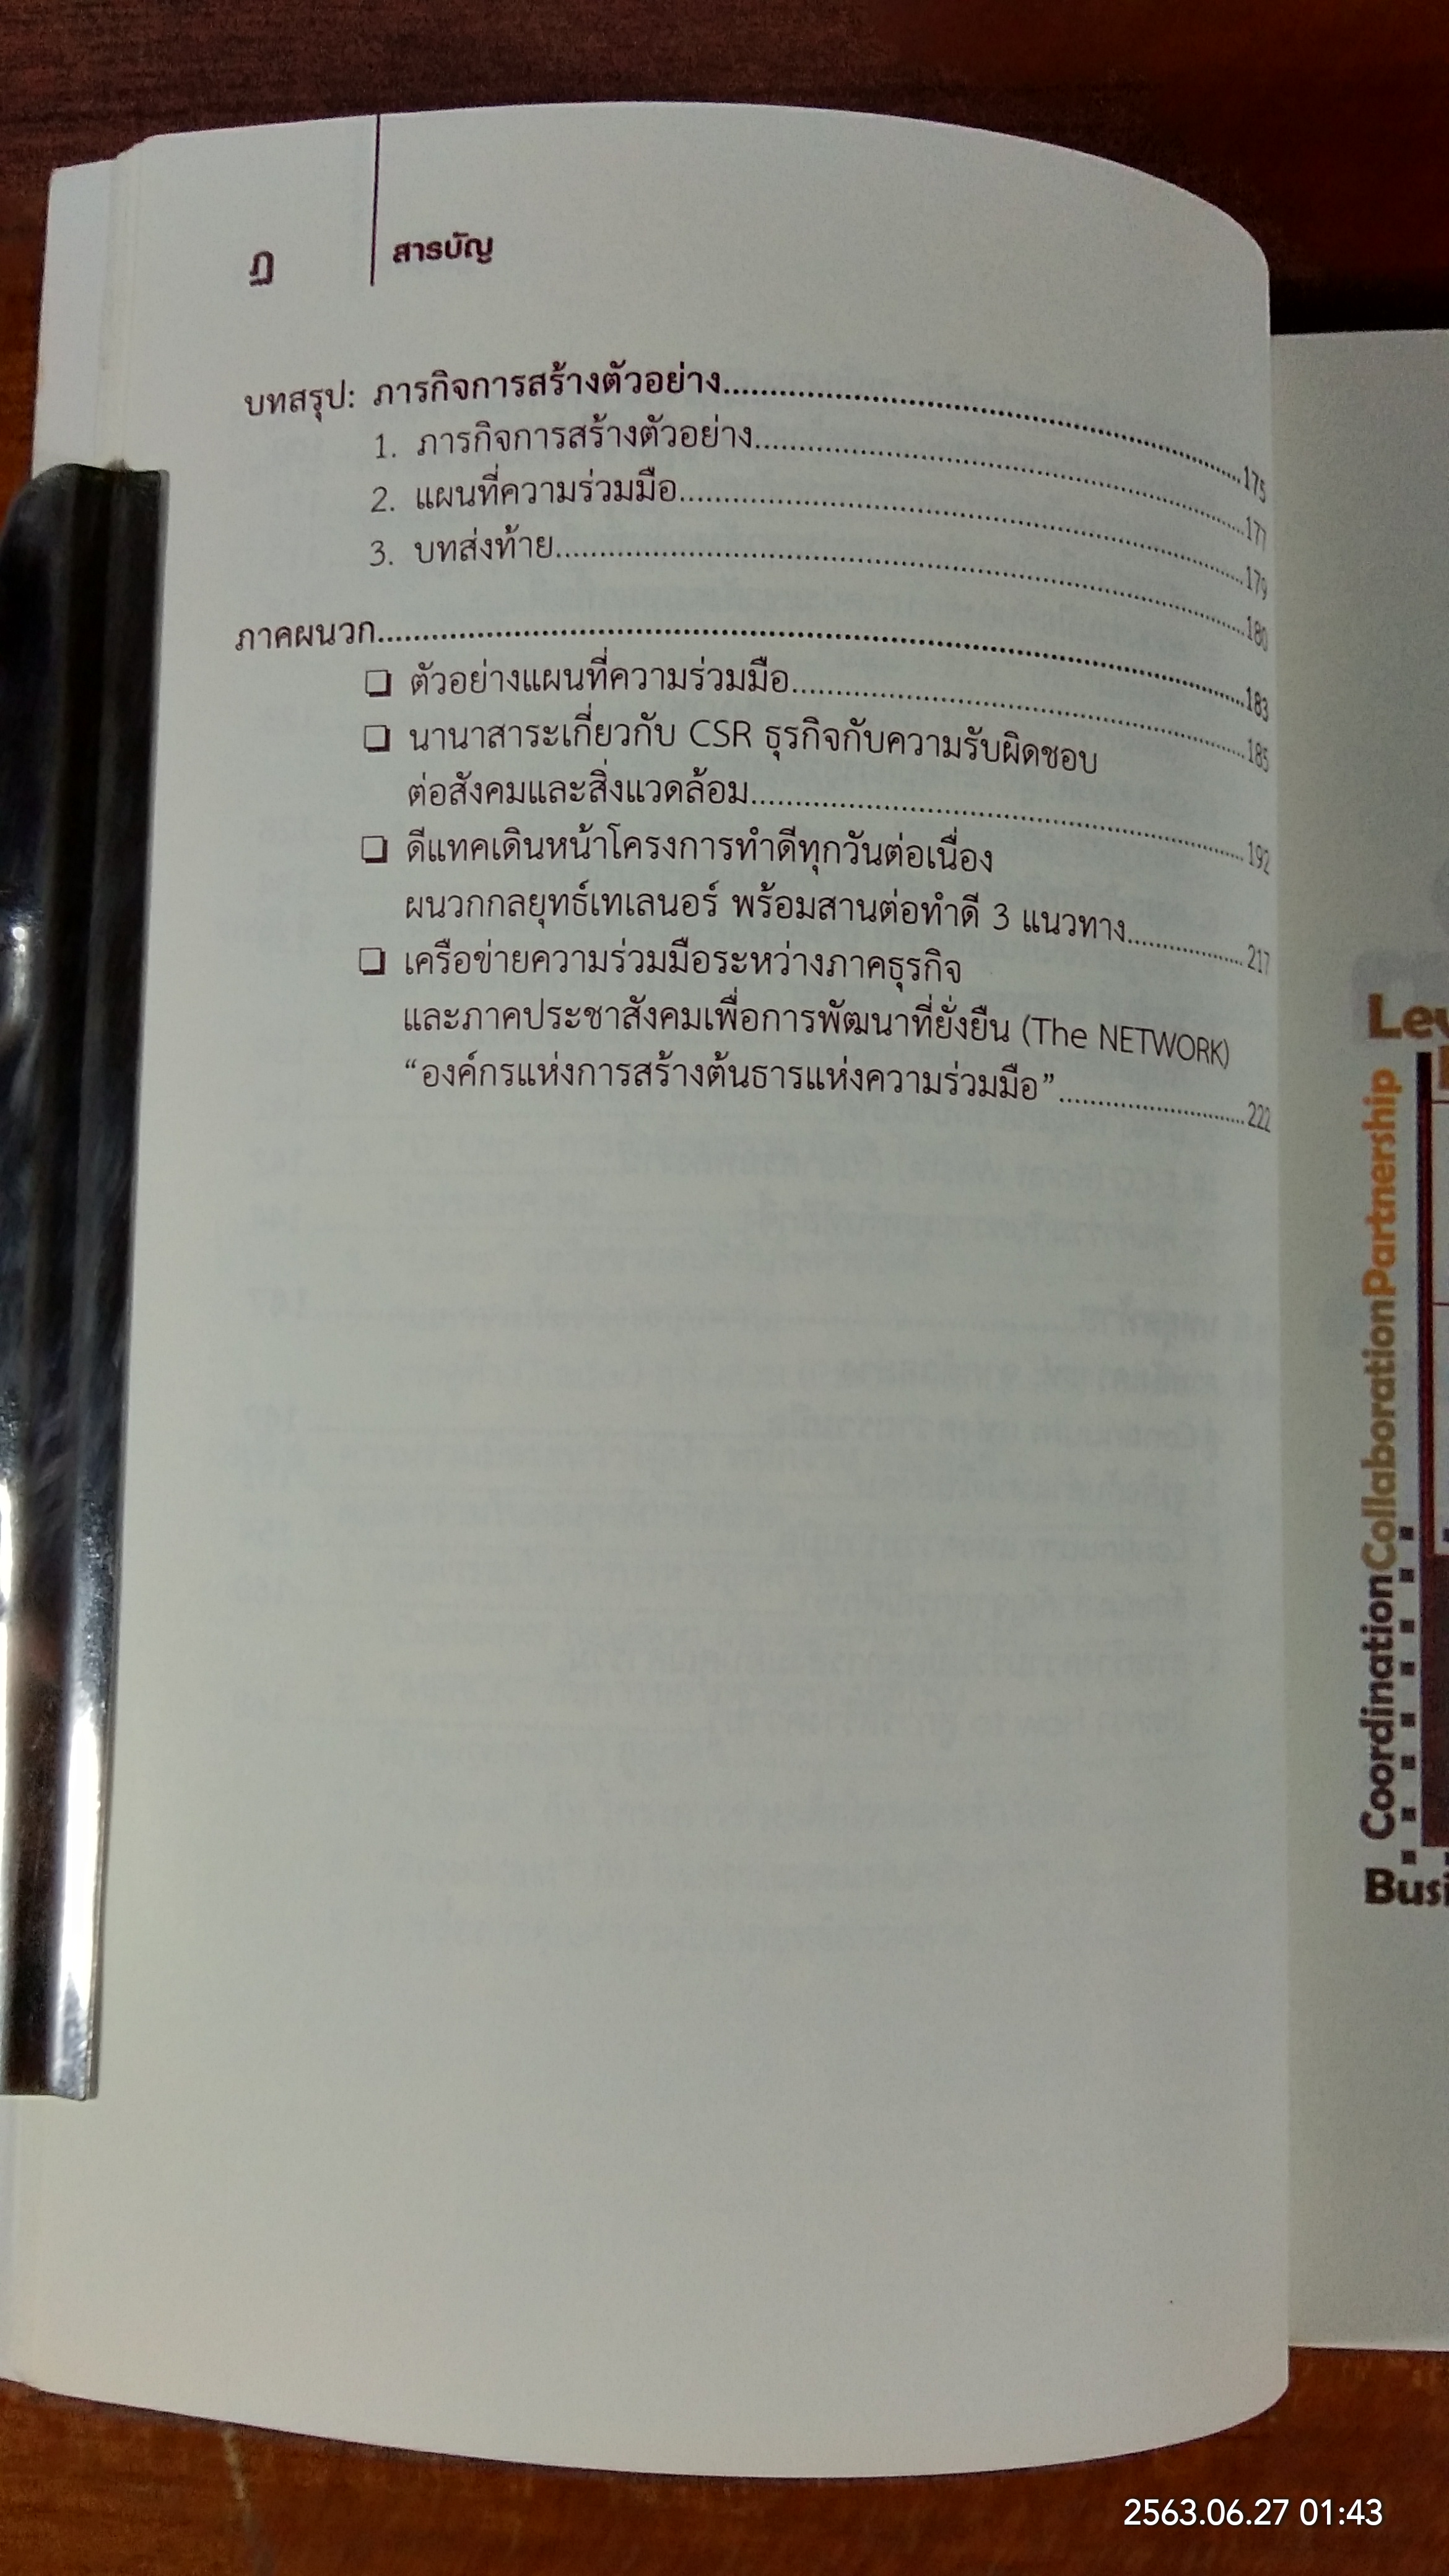 ฎ
สารบัญ
บทสรุป: ภารกิจการสร้างตัวอย่าง..........175
1. ภารกิจการสร้างตัวอย่าง..........177
2. แผนที่ความร่วมมือ..........179
3. บทส่งท้าย..........180
ภาคผนวก..........183
❑ ตัวอย่างแผนที่ความร่วมมือ..........185
❑ นานาสาระเกี่ยวกับ CSR ธุรกิจกับความรับผิดชอบ
ต่อสังคมและสิ่งแวดล้อม..........192
❑ ดีแทคเดินหน้าโครงการทำดีทุกวันต่อเนื่อง
ผนวกกลยุทธ์เทเลนอร์ พร้อมสานต่อทำดี 3 แนวทาง..........217
❑ เครือข่ายความร่วมมือระหว่างภาคธุรกิจ
และภาคประชาสังคมเพื่อการพัฒนาที่ยั่งยืน (The NETWORK)
“องค์กรแห่งการสร้างต้นธารแห่งความร่วมมือ”..........222
Lev
Partnership
Collaboration
Coordination
Busi
2563.06.27 01:43